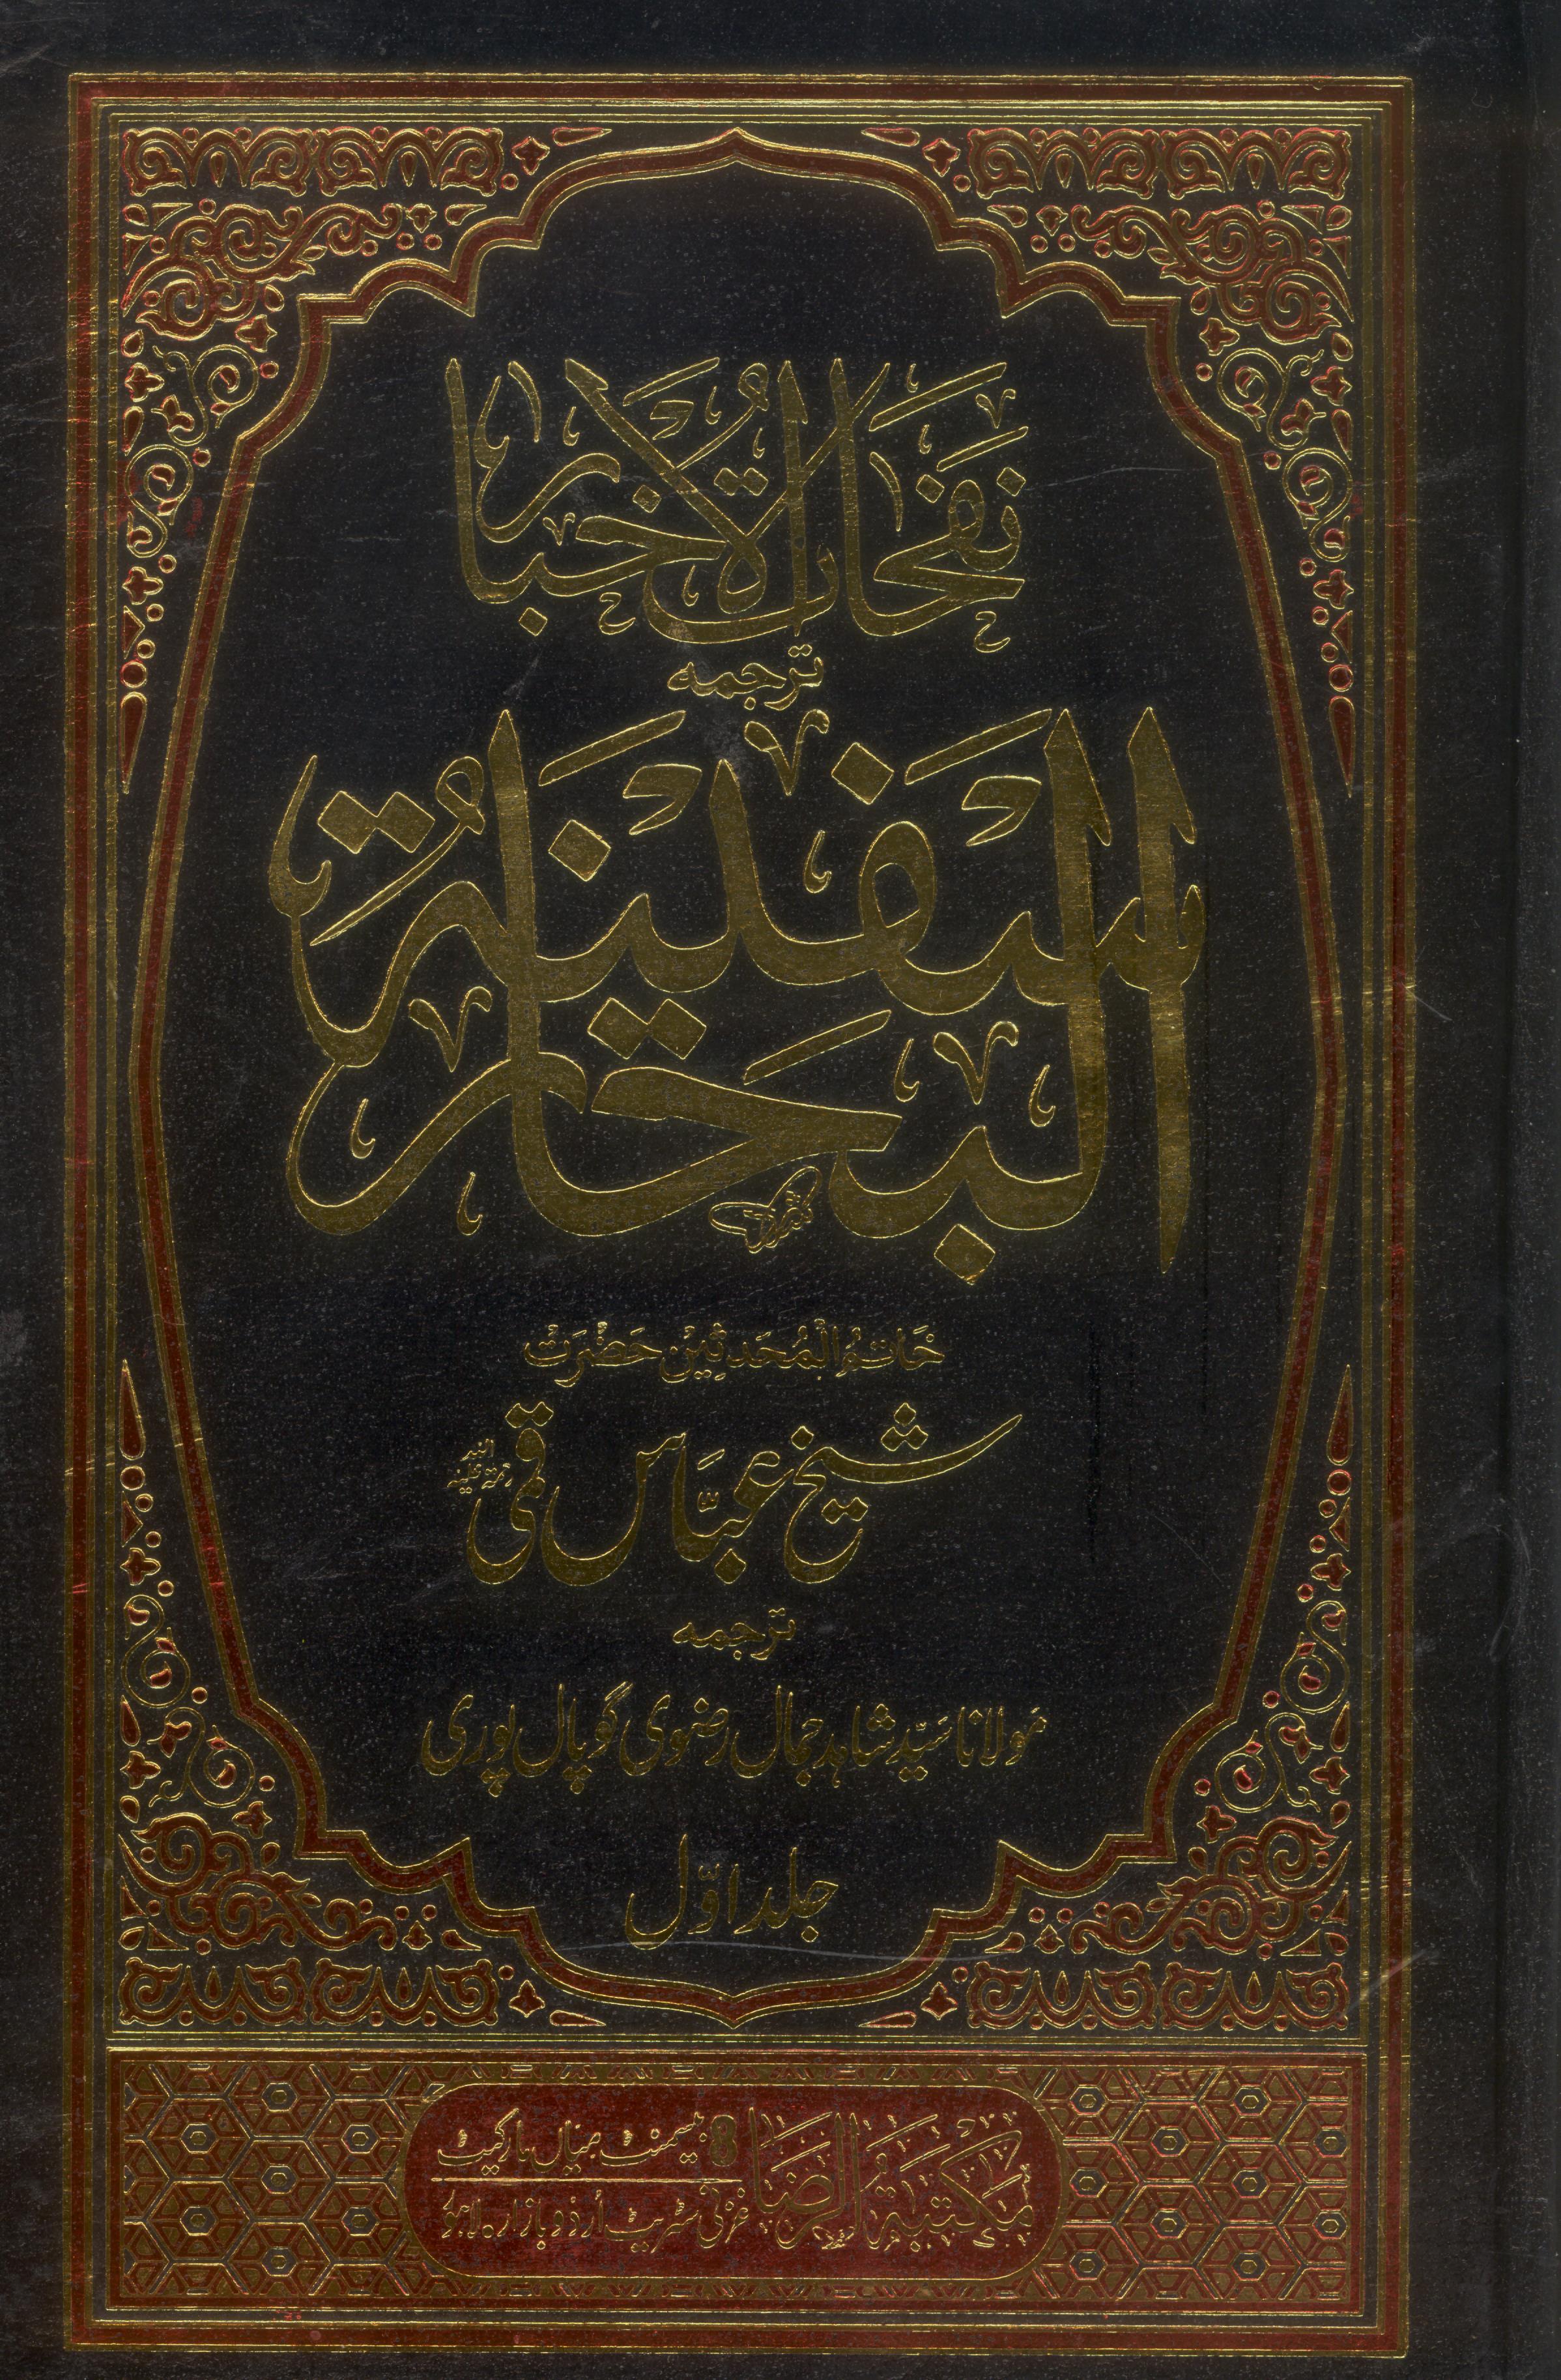 نفحات الاخبار
ترجمہ
سفینۃ
البحار
خاتم المحدثین حضرت
شیخ عباس قمی رحمۃ اللہ علیہ
ترجمہ
مولانا سیّد شاہد جمال رضوی گوپال پوری
جلد اوّل
مکتبۃ الرضا
8 بیسمنٹ میاں مارکیٹ
غزنی سٹریٹ اردو بازار لاہور